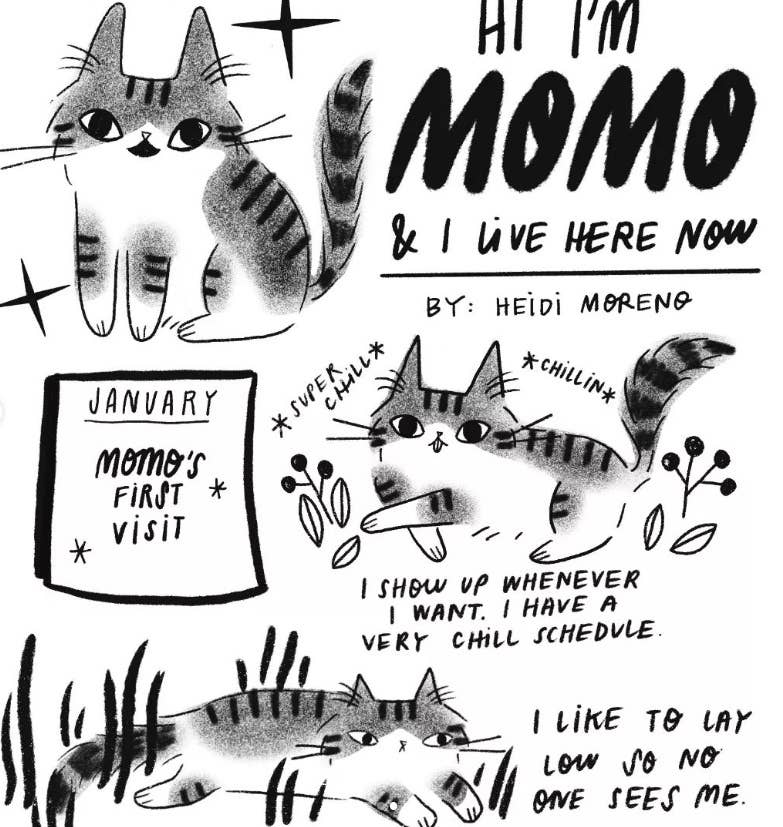 HI I'M
MOMO
& I LIVE HERE NOW
BY: HEIDI MORENO
JANUARY
MOMO'S
FIRST
VISIT
*SUPER
CHILL*
*CHILLIN*
I SHOW UP WHENEVER
I WANT. I HAVE A
VERY CHILL SCHEDULE.
I LIKE TO LAY
LOW SO NO
ONE SEES ME.